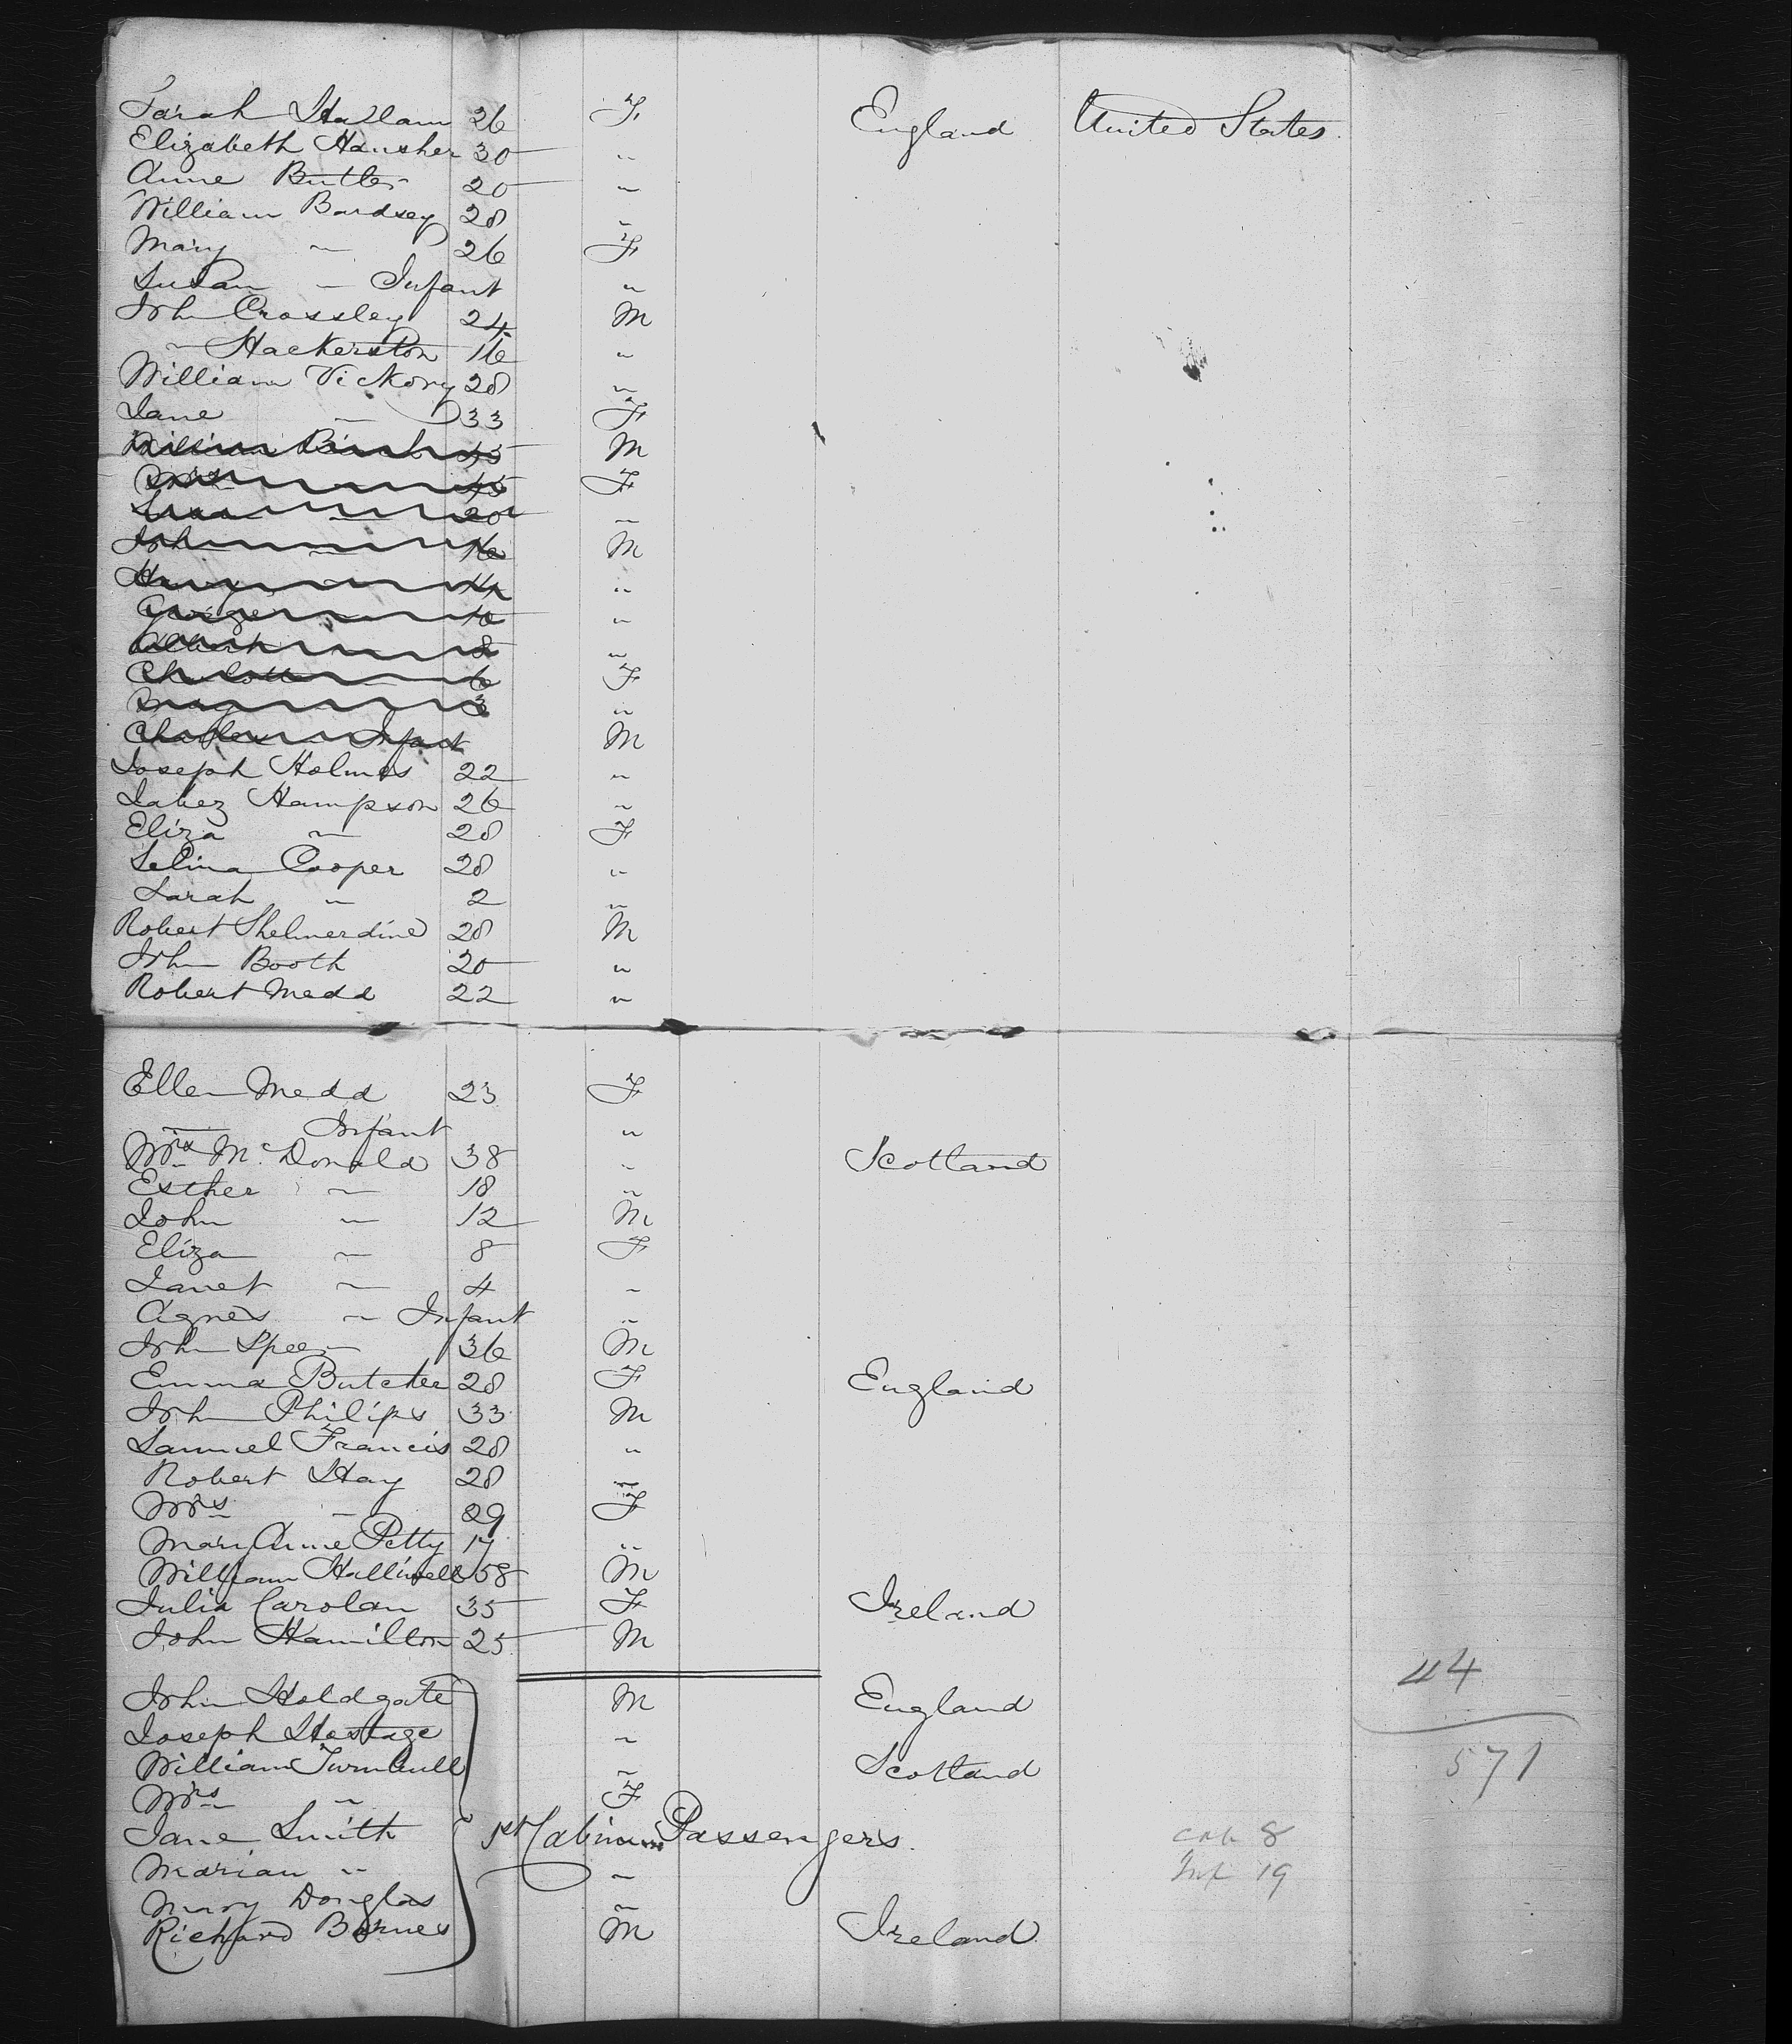 Sarah Hallam 26 F England United States.
Elizabeth Hamsher 30 "
Anne Butler 20 "
William Bardsey 28 "
Mary " 26 F
Susan " Infant "
John Crossley 24 M
" Hackerston 16 "
William Vickory 28 "
Jane " 33 F
William Birch 45 M
45 F
20 "
John " 16 M
Henry " 14 "
George 10 "
Albert 8 "
Charlotte 6 F
Mary 3 "
Charles Infant M
Joseph Holmes 22 "
Jabez Hampson 26 "
Eliza " 28 F
Selina Cooper 28 "
Sarah " 2 "
Robert Shelmerdine 28 M
John Booth 20 "
Robert Medd 22 "
Ellen Medd 23 F
" Infant "
Mrs McDonald 38 " Scotland
Esther " 18 "
John " 12 M
Eliza " 8 F
Janet " 4 "
Agnes " Infant "
John Speer 36 M
Emma Butcher 28 F England
John Philips 33 M
Samuel Francis 28 "
Robert Hay 28 "
Mrs " 29 F
Mary Anne Petty 17 "
William Halliwell 58 M
Julia Carolan 35 F Ireland
John Hamilton 25 M
44
John Holdgate M England
Joseph Hostage "
571
William Turnbull " Scotland
Mrs " F
Jane Smith 1st Cabin Passengers.
cab 8
Marian " "
Inf 19
Mary Douglas "
Richard Barnes M Ireland